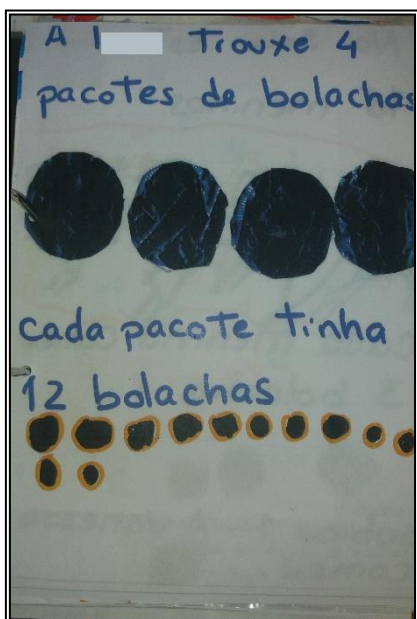 A l Trouxe 4
pacotes de bolachas
cada pacote tinha
12 bolachas